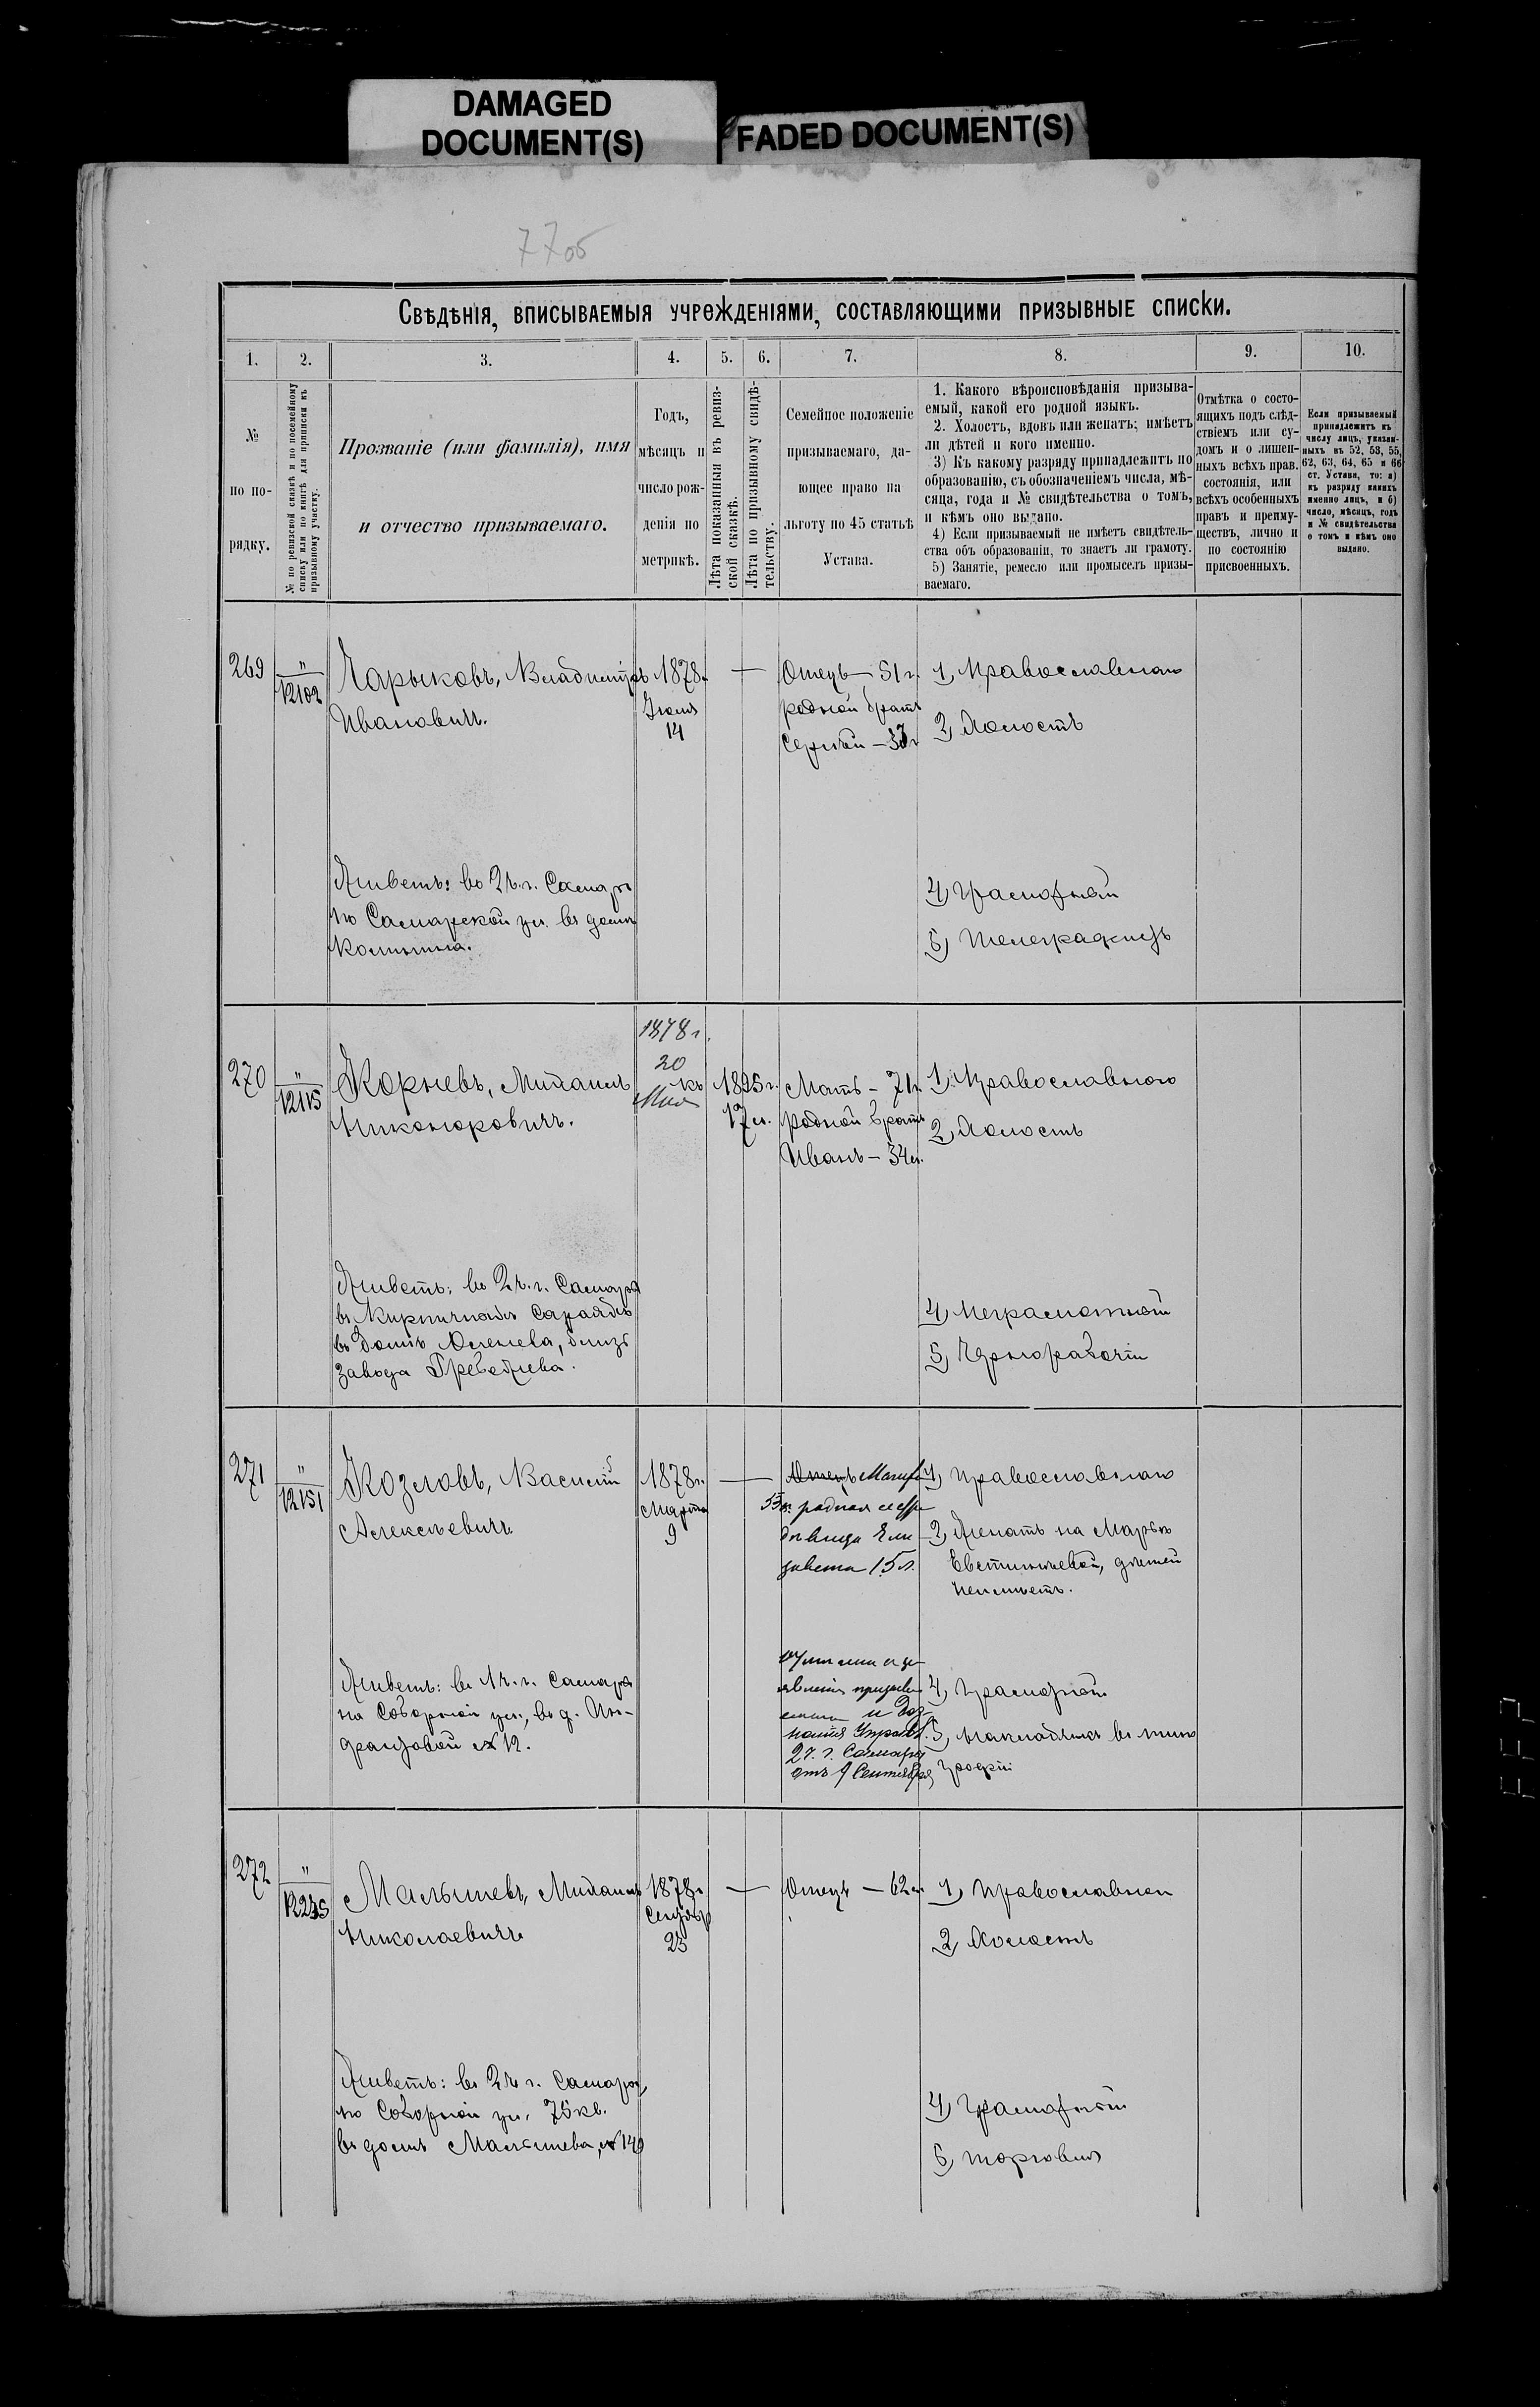 DAMAGED
DOCUMENT(S)
FADED DOCUMENT(S)
77об
Свѣдѣнія, вписываемыя учрежденіями, составляющими призывные списки.
1. 2. 3. 4. 5. 6. 7. 8. 9. 10.
№
по по-
рядку.
№ по ревизской сказкѣ и по посемейному
списку или по книгѣ для приписки къ
призывному участку.
Прозваніе (или фамилія), имя
и отчество призываемаго.
Годъ,
мѣсяцъ и
число рож-
денія по
метрикѣ.
Лѣта показанныя въ ревиз-
ской сказкѣ.
Лѣта по призывному свидѣ-
тельству.
Семейное положеніе
призываемаго, да-
ющее право на
льготу по 45 статьѣ
Устава.
1. Какого вѣроисповѣданія призыва-
емый, какой его родной языкъ.
2. Холостъ, вдовъ или женатъ; имѣетъ
ли дѣтей и кого именно.
3) Къ какому разряду принадлежитъ по
образованію, съ обозначеніемъ числа, мѣ-
сяца, года и № свидѣтельства о томъ,
и кѣмъ оно выдано.
4) Если призываемый не имѣетъ свидѣтель-
ства объ образованіи, то знаетъ ли грамоту.
5) Занятіе, ремесло или промыселъ призы-
ваемаго.
Отмѣтка о состо-
ящихъ подъ слѣд-
ствіемъ или су-
домъ и о лишен-
ныхъ всѣхъ прав.
состоянія, или
всѣхъ особенныхъ
правъ и преиму-
ществъ, лично и
по состоянію
присвоенныхъ.
Если призываемый
принадлежитъ къ
числу лицъ, указан-
ныхъ въ 52, 53, 55,
62, 63, 64, 65 и 66
ст. Устава, то: а)
къ разряду какихъ
именно лицъ, и б)
число, мѣсяцъ, годъ
и № свидѣтельства
о томъ и кѣмъ оно
выдано.
269
"
12102
Чарыковъ, Владиміръ
Ивановичъ.
1878г
Іюля
14
—
Отецъ — 51 г.
родной братъ
Сергѣй —
1) Православнаго
2) Холостъ
Живетъ: во 2 ч. г. Самары
по Самарской ул. въ домѣ
4) Грамотный
5) Телеграфистъ
270
"
12115
Корневъ, Михаилъ
Никоноровичъ.
1878 г.
20
1895 г.
17 л.
Мать — 71 г.
родной братъ
Иванъ — 34 л.
1) Православнаго
2) Холостъ
Живетъ: во 2 ч. г. Самары
въ Кирпичныхъ Сараяхъ
въ домѣ Аленева, близъ
завода
4) Неграмотный
5) Чернорабочій
271
"
12151
Козловъ, Василій
Алексѣевичъ
1878 г.
Марта
9
—
Отецъ Мать
53 г. родная сестра
дѣвица Ели-
завета 15 л.
1) Православнаго
2) Женатъ на Марьѣ
Евстигнѣевой, дѣтей
неимѣетъ.
Живетъ: въ 1 ч. г. Самары
на Соборной ул., въ д.
№ 12.
2 ч. г. Самары
отъ 9 Сентября
4) Грамотный
5) Накладчикъ въ типо
графіи
272
"
12235
Малышевъ, Михаилъ
Николаевичъ
1878г
Сентября
23
—
Отецъ — 62 г.
1) Православнаго
2) Холостъ
Живетъ: во 2 ч. г. Самары,
по Соборной ул. 75 кв.
въ домѣ Малышева, № 140
4) Грамотный
5) торговля